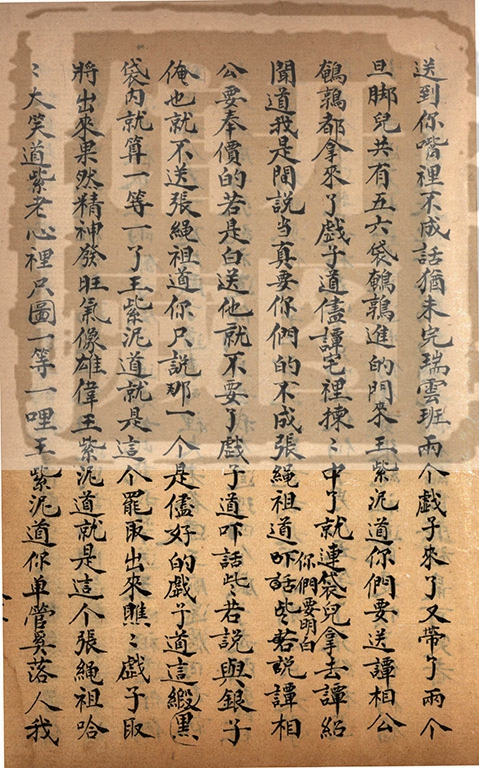 送到你嘴裡不成話猶未完瑞雲班兩个戲子來了又帶了兩个
旦脚兒共有五六袋鵪鶉進的門來王紫泥道你們要送譚相公
鵪鶉都拿來了戲子道儘譚宅裡揀〻中了就連袋兒拿去譚紹
聞道我是閒說当真要你們的不成張繩祖道吓話些〻若說譚相
你們要明白
公要奉價的若是白送他就不要了戲子道吓話些〻若說與銀子
俺也就不送張繩祖道你只說那一个是儘好的戲子道這緞黑
袋內就算一等一了王紫泥道就是這个罷取出來瞧〻戲子取
將出來果然精神發旺氣像雄偉王紫泥道就是這个張繩祖哈
〻大笑道紫老心裡只圖一等一哩王紫泥道你单管奚落人我